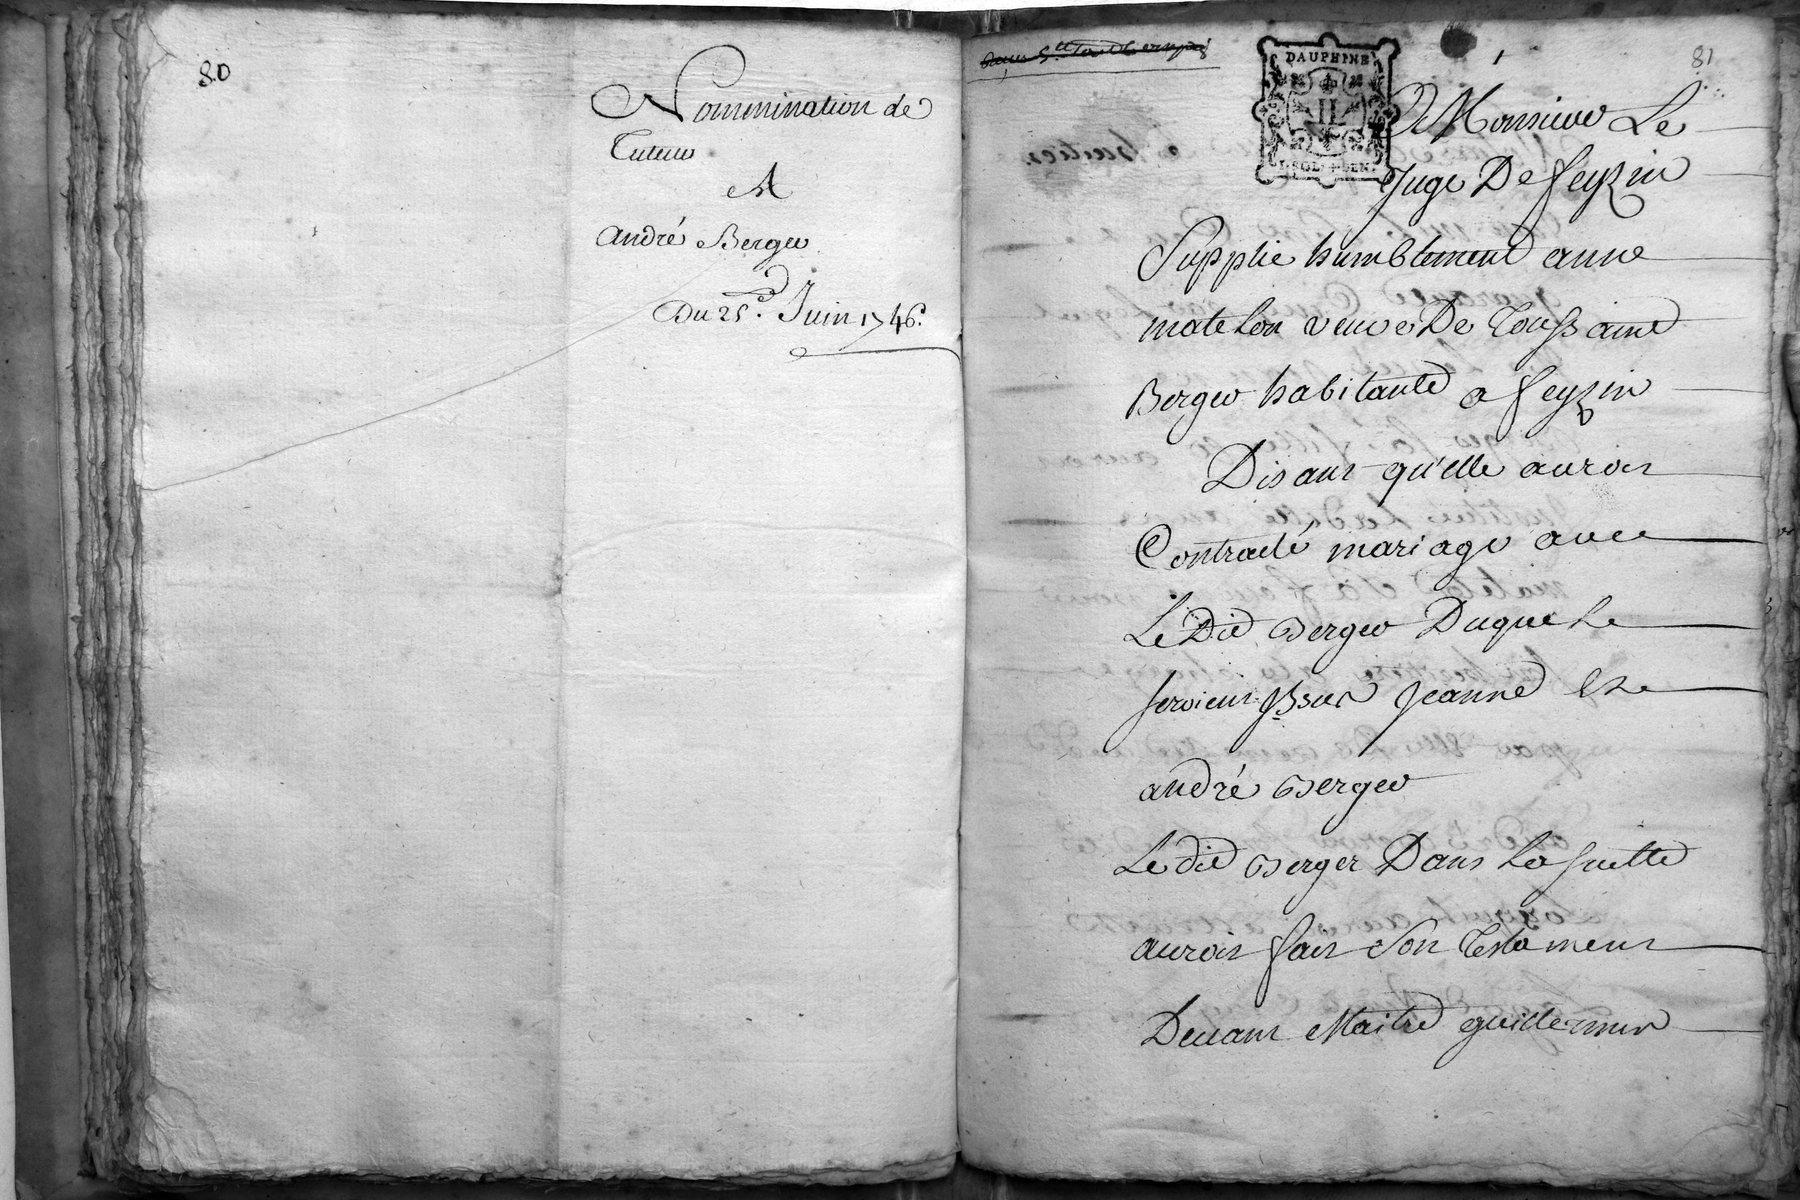 80
Nommination de
Tuteur
A
André Berger
Du 25.e Juin 1746.
81
DAUPHINE
II
SOL
DEN.
A Monsieur Le
Juge De feyzin
Supplie humblement anne
matelon veuve De Toussaint
Berger habitante a feyzin
Disant qu'elle auroit
Contracté mariage avec
Le Dit Berger Duquel
seroient issus Jeanne et
andré Berger
Le dit Berger Dans la suitte
auroit fait Son Testament
Devant Maitre guillermin